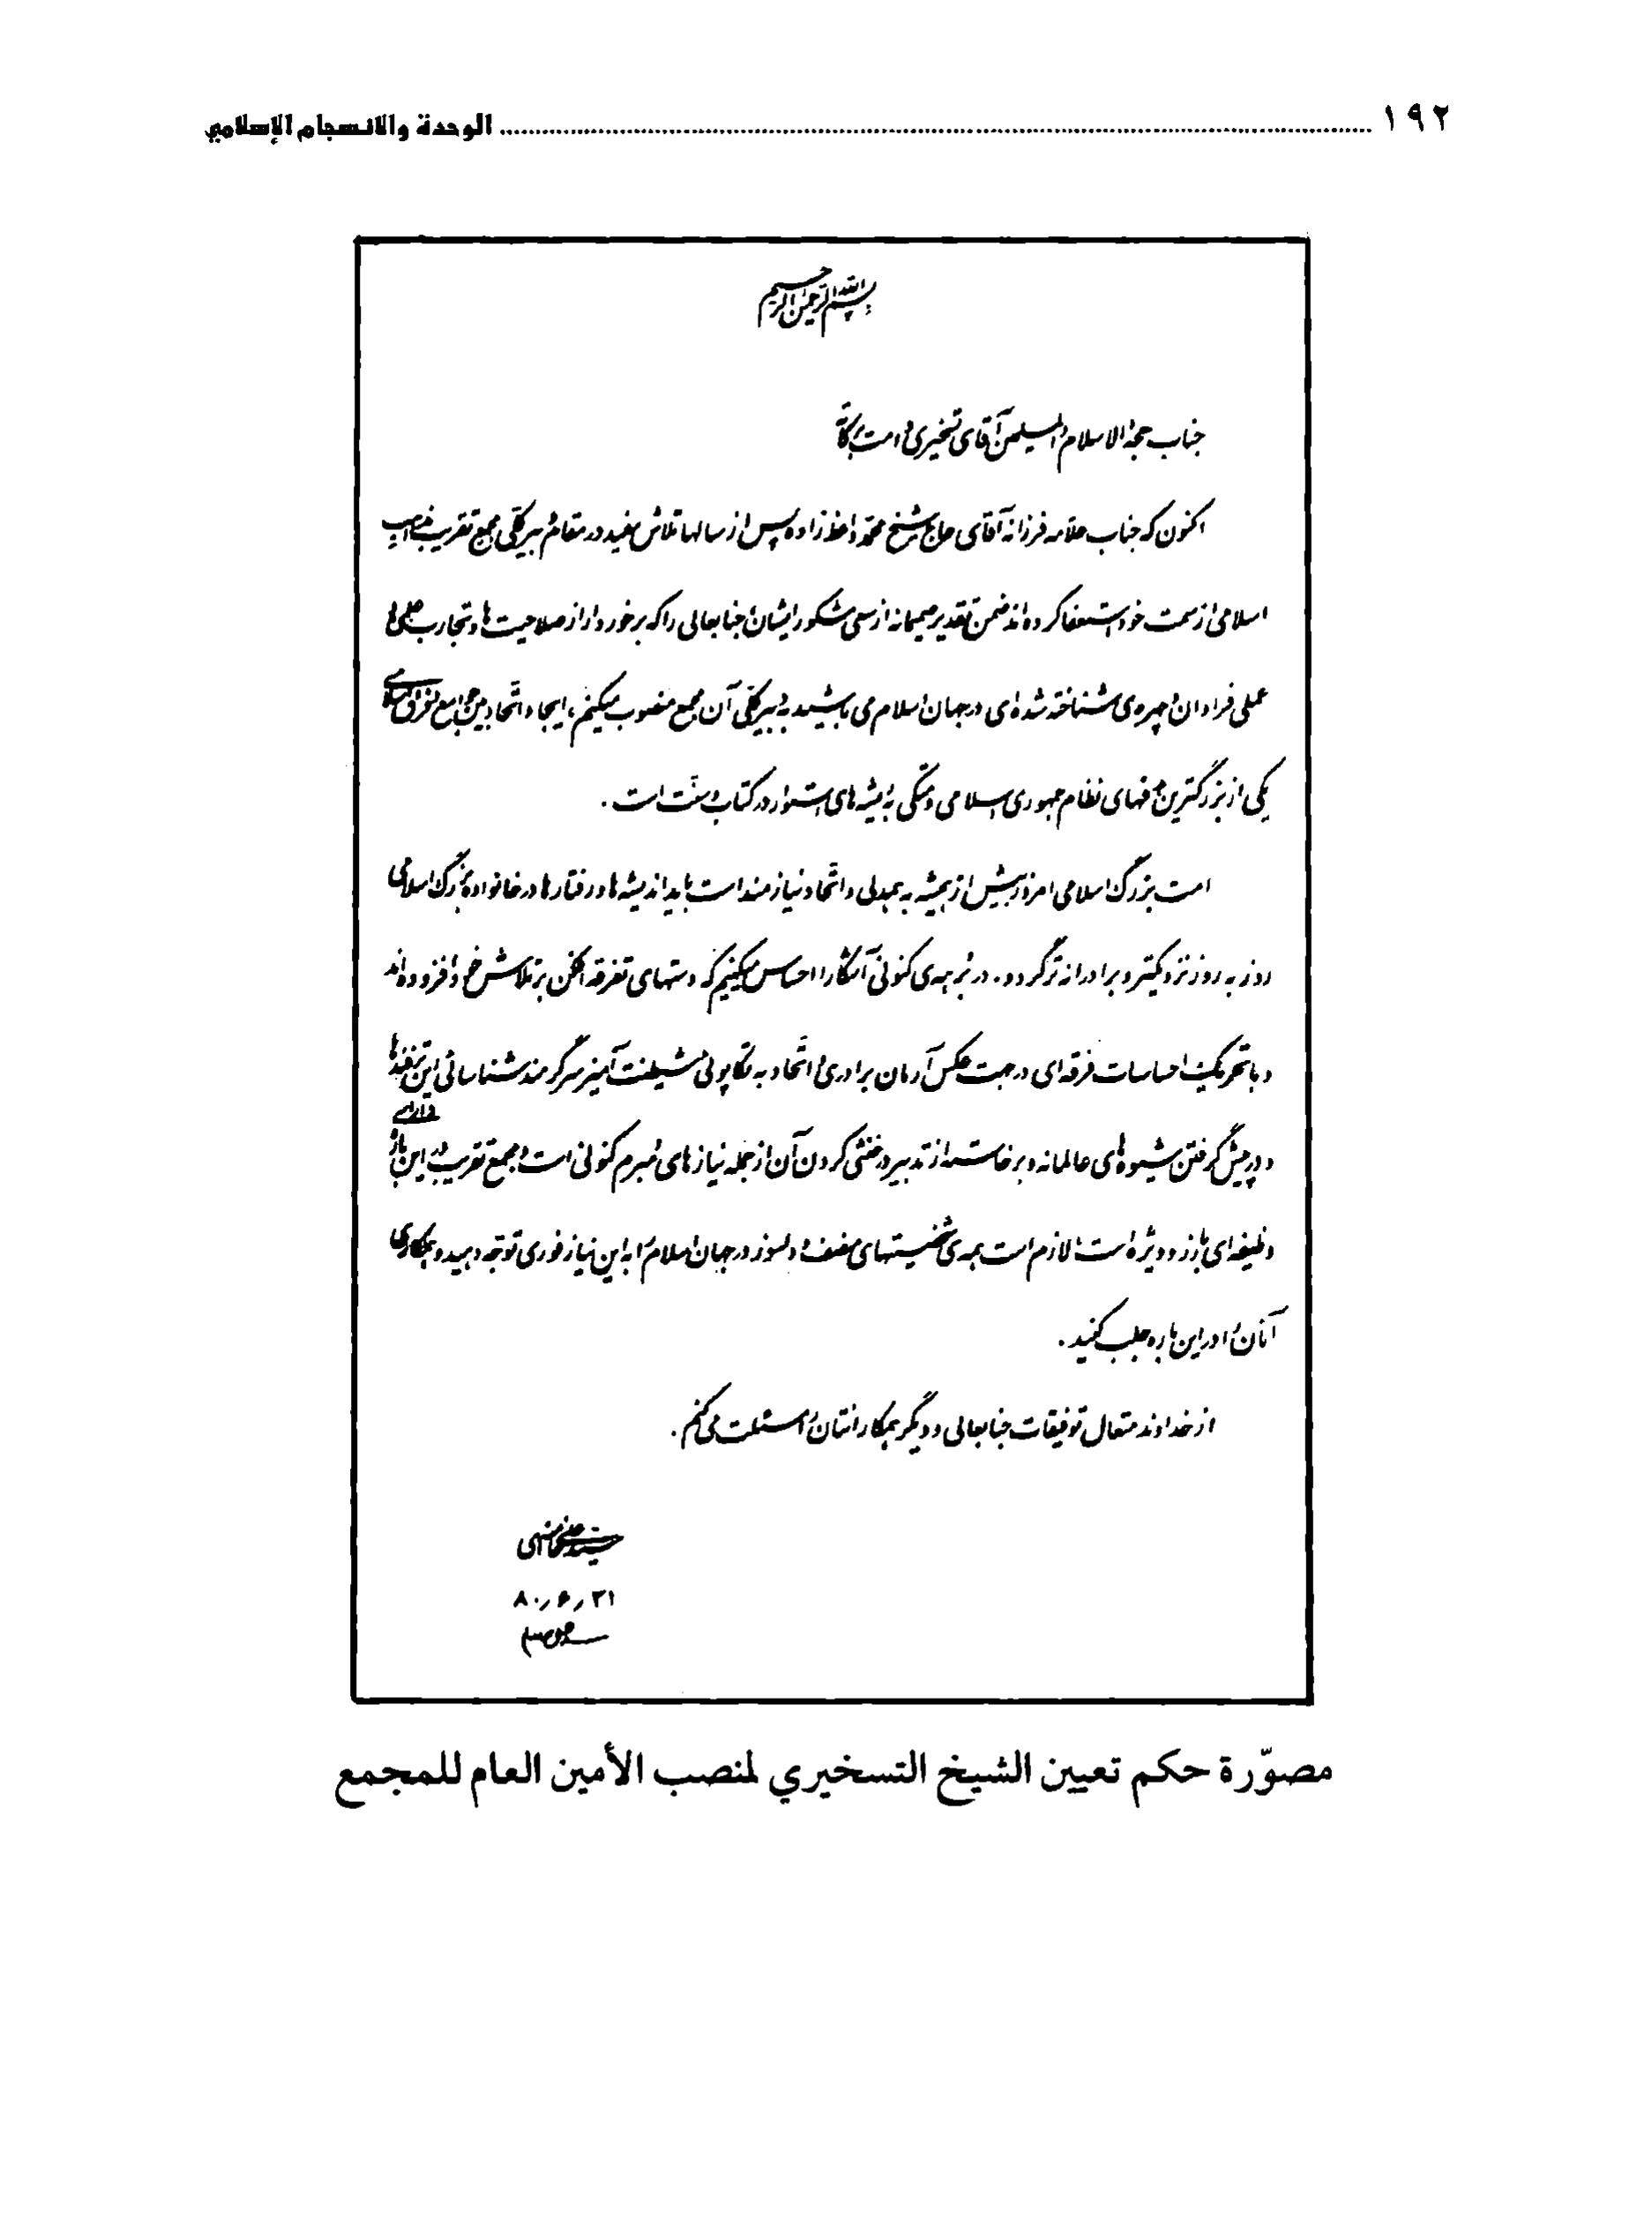 ١٩٢ ........ الوحدة والانسجام الإسلامي
بسم الله الرحمن الرحیم
جناب حجة الاسلام والمسلمین آقای تسخیری دامت برکاته
اکنون که جناب علامه فرزانه آقای حاج شیخ محمد واعظ زاده پس از سالها تلاش مفید در مقام دبیر کلی مجمع تقریب مذاهب
اسلامی از سمت خود استعفا کرده‌اند ضمن تقدیر صمیمانه از سعی مشکور ایشان، جنابعالی را که برخوردار از صلاحیت‌ها و تجارب علمی و
عملی فراوان و چهره‌ی شناخته شده‌ای در جهان اسلام می باشید به دبیر کلی آن مجمع منصوب میکنم، ایجاد اتحاد بین جوامع و فرق اسلامی
یکی از بزرگترین هدفهای نظام جمهوری اسلامی و متکی به ریشه های استوار در کتاب و سنّت است .
امت بزرگ اسلامی امروز بیش از همیشه به همدلی و اتّحاد نیازمند است باید اندیشه ها و رفتارها در خانواده بزرگ اسلامی
روز به روز نزدیکتر و برادرانه تر گردد. در برهه‌ی کنونی آشکارا احساس میکنیم که دستهای تفرقه افکن بر تلاش خود افزوده‌اند
و با تحریک احساسات فرقه‌ای در جهت عکس آرمان برادری و اتّحاد به تکاپوئی شیطنت آمیز سرگرمند شناسائی این ترفندها
و در پیش گرفتن شیوه‌های عالمانه و برخاسته از تدبیر در خنثی کردن آن از جمله نیازهای مُبرم کنونی است و مجمع تقریب در این باره دارای
وظیفه‌ای بارز و ویژه است. لازم است همه‌ی شخصیتهای منصف و دلسوز در جهان اسلام را به این نیاز فوری توجّه دهید و همکاری
آنان را در این باره جلب کنید .
از خداوند متعال توفیقات جنابعالی و دیگر همکارانتان را مسئلت می کنم .
سید علی خامنه‌ای
٨٠/٦/٢١
مصوّرة حكم تعيين الشيخ التسخيري لمنصب الأمين العام للمجمع